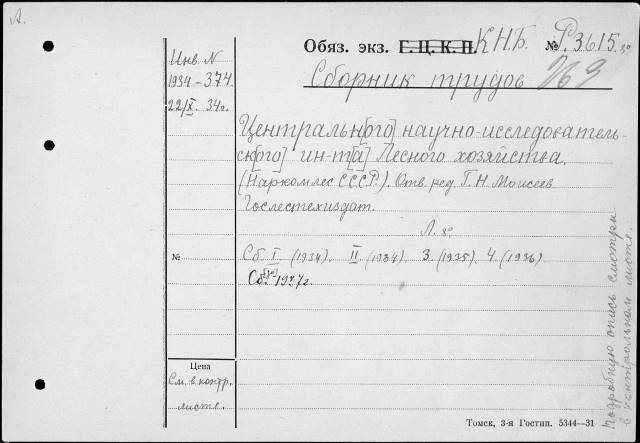 А.
Обяз. экз. Г. Ц. К. П. К.Н.Б. № Р3615. 8°
Инв. N
1934-374
22/X. 34г.
Сборник трудов
769
Центральн[ого] научно-исследователь-
ск[ого] ин-т[а] Лесного хозяйства.
(Наркомлес СССР.). Отв. ред. Г. Н. Моисеев
Гослестехиздат.
Л. 8°
№
Сб. I. (1934). II. (1934). 3. (1935). 4. (1936).
Сб. 1937г.
Цена
См. в контр.
листе.
Подробную опись смотри
в контрольном листе.
Томск, 3-я Гостип. 5344—31